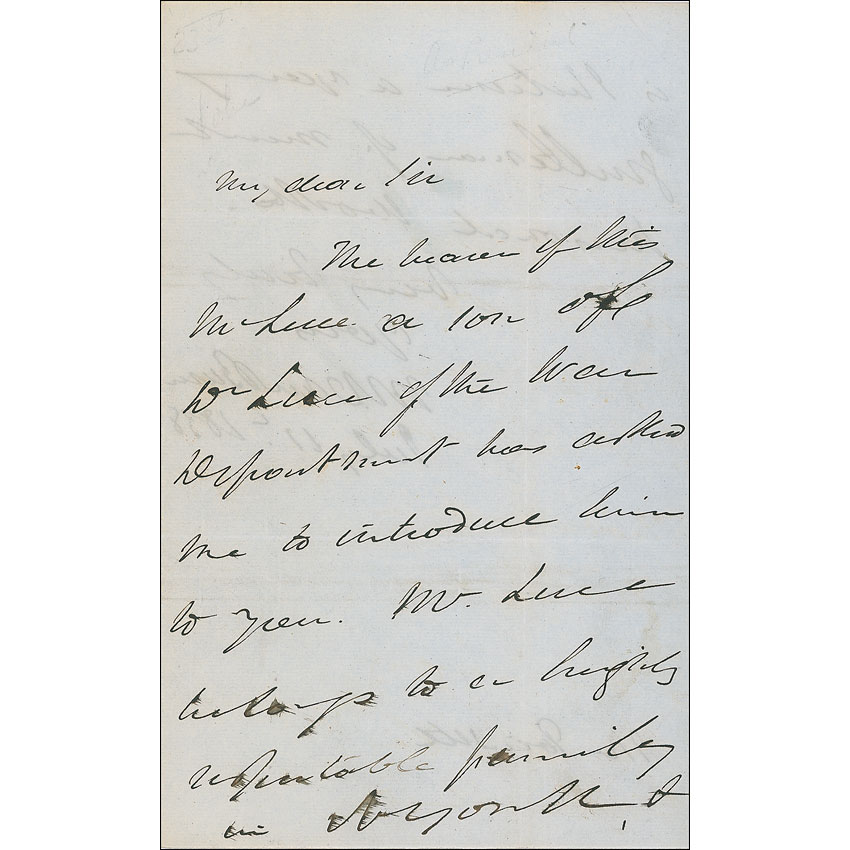 My dear Sir
The bearer of this
Mr Luce a son of
Dr Luce of the War
Department has asked
me to introduce him
to you. Mr. Luce
belongs to a highly
reputable family
in N York &